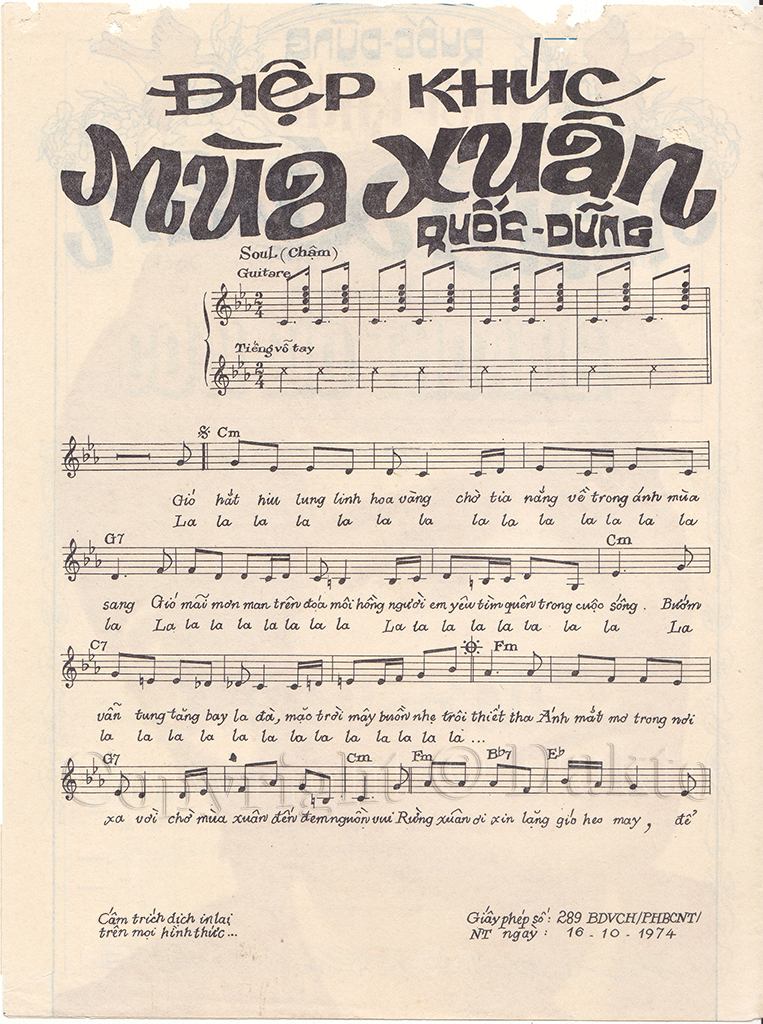 ĐIỆP KHÚC
MÙA XUÂN
QUỐC-DŨNG
Soul (Chậm)
Guitare
Tiếng vỗ tay
Cm
Gió hắt hiu lung linh hoa vàng chờ tia nắng về trong ánh mùa
La la la la la la la la la la la la la
G7 Cm
sang Gió mãi mơn man trên đóa môi hồng người em yêu tìm quên trong cuộc sống. Bướm
la La la la la la la la La la la la la la la la La
C7 Fm
vẫn tung tăng bay la đà, mặc trời mây buồn nhẹ trôi thiết tha Ánh mắt mơ trong nơi
la la la la la la la la la la la la la ...
G7 Cm Fm Bb7 Eb
xa vời chờ mùa xuân đến đem nguồn vui Rừng xuân ơi xin lặng gió heo may, để
Copyright © Dakto
Cấm trích dịch in lại
trên mọi hình thức...
Giấy phép số: 289 BDVCH/PHBCNT/
NT ngày: 16-10-1974